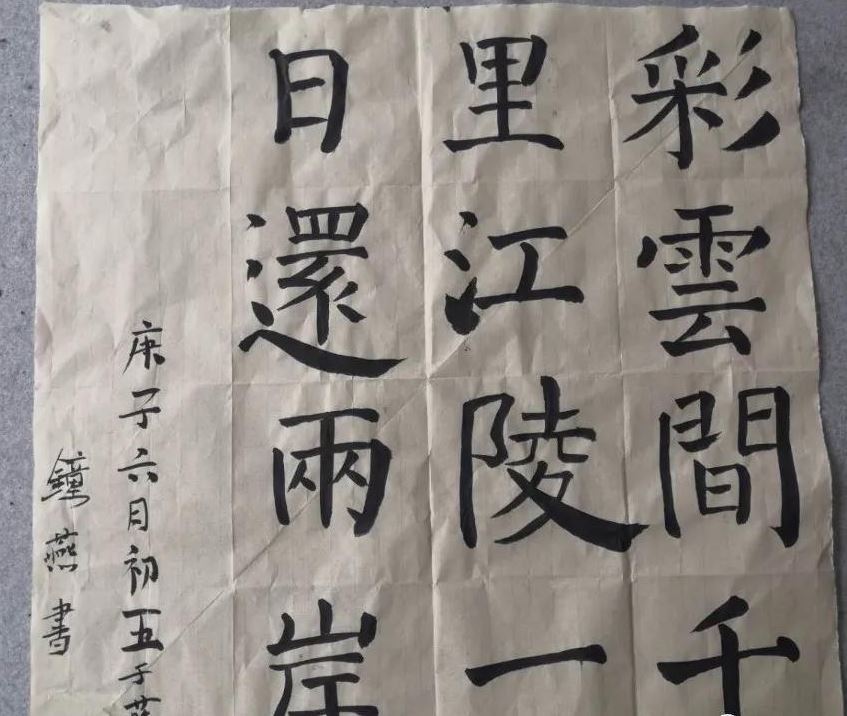 彩雲間千
里江陵一
日還兩岸
庚子六月初五于
燕書